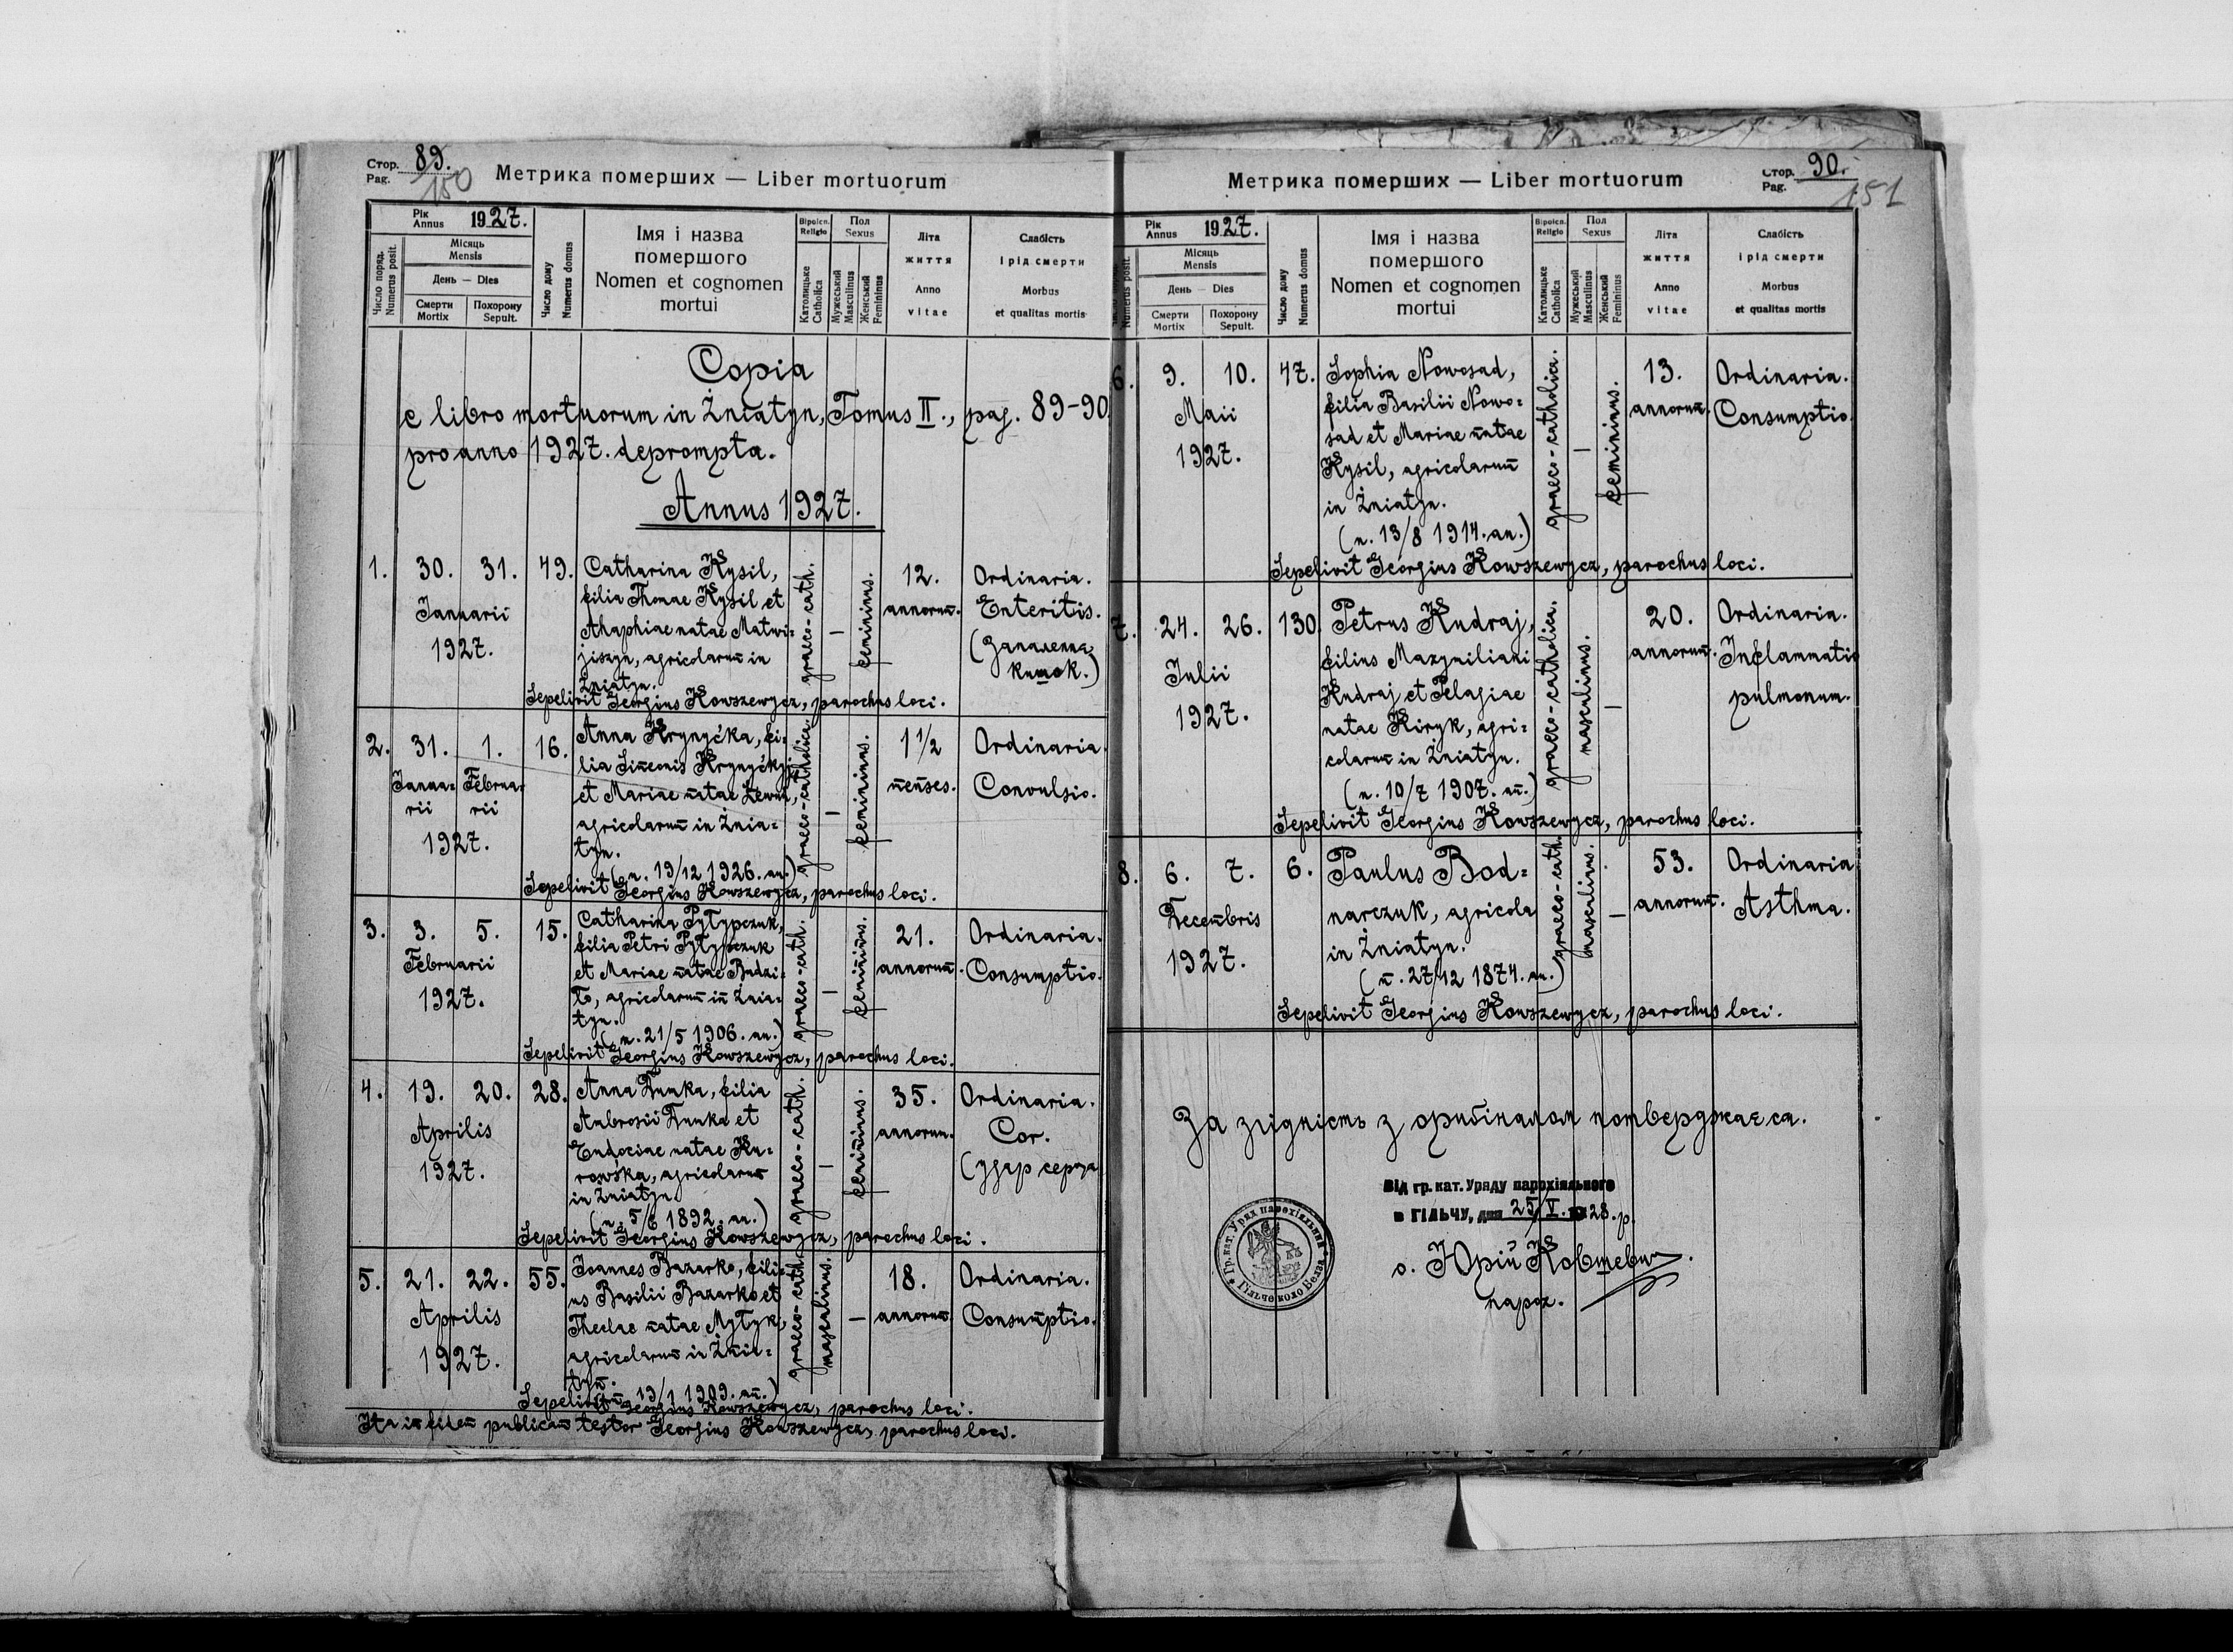 Стор. 89.
Pag. 150
Метрика померших — Liber mortuorum
Рік
Annus 1927.
Число поряд.
Numerus posit.
Місяць
Mensis
День — Dies
Смерти
Mortix
Похорону
Sepult.
Число дому
Numerus domus
Імя і назва
помершого
Nomen et cognomen
mortui
Віроісп.
Religio
Католицьке
Catholica
Пол
Sexus
Мужеський
Masculinus
Женський
Femininus
Літа
життя
Anno
vitae
Слабість
і рід смерти
Morbus
et qualitas mortis
Copia
e libro mortuorum in Żniatyn, Tomus II., pag. 89-90
pro anno 1927. deprompta.
Annus 1927.
1. 30. 31. 49. Catharina Kysil, graeco-cath. — femininus. 12. Ordinaria.
Januarii filia Thomae Kysil et annorum. Enteritis.
1927. Ahaphiae natae Matwi= (запалення
jiszyn, agricolarum in кишок.)
Żniatyn.
Sepelivit Georgius Kowszewycz, parochus loci.
2. 31. 1. 16. Anna Krynyćka, fi= graeco-catholica. — femininus. 1 1/2 Ordinaria.
Janua= Februa= lia Simeonis Krynyćkyj menses. Convulsio.
rii rii et Mariae natae
1927. agricolarum in Żnia=
tyn.
(n. 19/12 1926. an.)
Sepelivit Georgius Kowszewycz, parochus loci.
3. 3. 5. 15. Catharina Pyłypczuk, graeco-cath. — femininus. 21. Ordinaria.
Februarii filia Petri Pyłypczuk annorum. Consumptio.
1927. et Mariae natae Budzi=
ło, agricolarum in Żnia=
tyn.
(n. 21/5 1906. an.)
Sepelivit Georgius Kowszewycz, parochus loci.
4. 19. 20. 28. Anna Dunka, filia graeco-cath. — femininus. 35. Ordinaria.
Aprilis Ambrosii Dunka et annorum. Cor.
1927. Eudociae natae Ku= (удар серця
rowśka, agricolarum
in Żniatyn.
(n. 5/6 1892. an.)
Sepelivit Georgius Kowszewycz, parochus loci.
5. 21. 22. 55. Joannes Bazarko, fili= graeco-cath. masculinus. — 18. Ordinaria.
Aprilis us Basilii Bazarko et annorum. Consumptio.
1927. Theclae natae Mytyk,
agricolarum in Żnia=
tyn.
(n. 19/1 1909. an.)
Sepelivit Georgius Kowszewycz, parochus loci.
Ita in fidem publicam testor Georgius Kowszewycz, parochus loci.
Стор. 90.
Pag. 151
Метрика померших — Liber mortuorum
Рік
Annus 1927.
Numerus posit.
Місяць
Mensis
День — Dies
Смерти
Mortix
Похорону
Sepult.
Число дому
Numerus domus
Імя і назва
помершого
Nomen et cognomen
mortui
Віроісп.
Religio
Католицьке
Catholica
Пол
Sexus
Мужеський
Masculinus
Женський
Femininus
Літа
життя
Anno
vitae
Слабість
і рід смерти
Morbus
et qualitas mortis
6. 9. 10. 47. Sophia Nowosad, graeco-catholica. — femininus. 13. Ordinaria.
Maii filia Basilii Nowo= annorum. Consumptio.
1927. sad et Mariae natae
Kysil, agricolarum
in Żniatyn.
(n. 13/8 1914. an.)
Sepelivit Georgius Kowszewycz, parochus loci.
7. 24. 26. 130. Petrus Kudraj, graeco-catholica. masculinus. — 20. Ordinaria.
Julii filius Maxymiliani annorum. Inflammatio
1927. Kudraj et Pelagiae pulmonum.
natae Kiryk, agri=
colarum in Żniatyn.
(n. 10/7 1907. an.)
Sepelivit Georgius Kowszewycz, parochus loci.
8. 6. 7. 6. Paulus Bod= graeco-cath. masculinus. — 53. Ordinaria
Decembris narczuk, agricola annorum. Asthma.
1927. in Żniatyn.
(n. 27/12 1874. an.)
Sepelivit Georgius Kowszewycz, parochus loci.
За згідність з оригіналом потверджаєся.
Від гр. кат. Уряду парохіяльного
в ГІЛЬЧУ, дня 25/V. 1928. р.
Гр. кат. Уряд парохіяльний
Гільче коло Белза
о. Юрій Ковшевич.
парох.